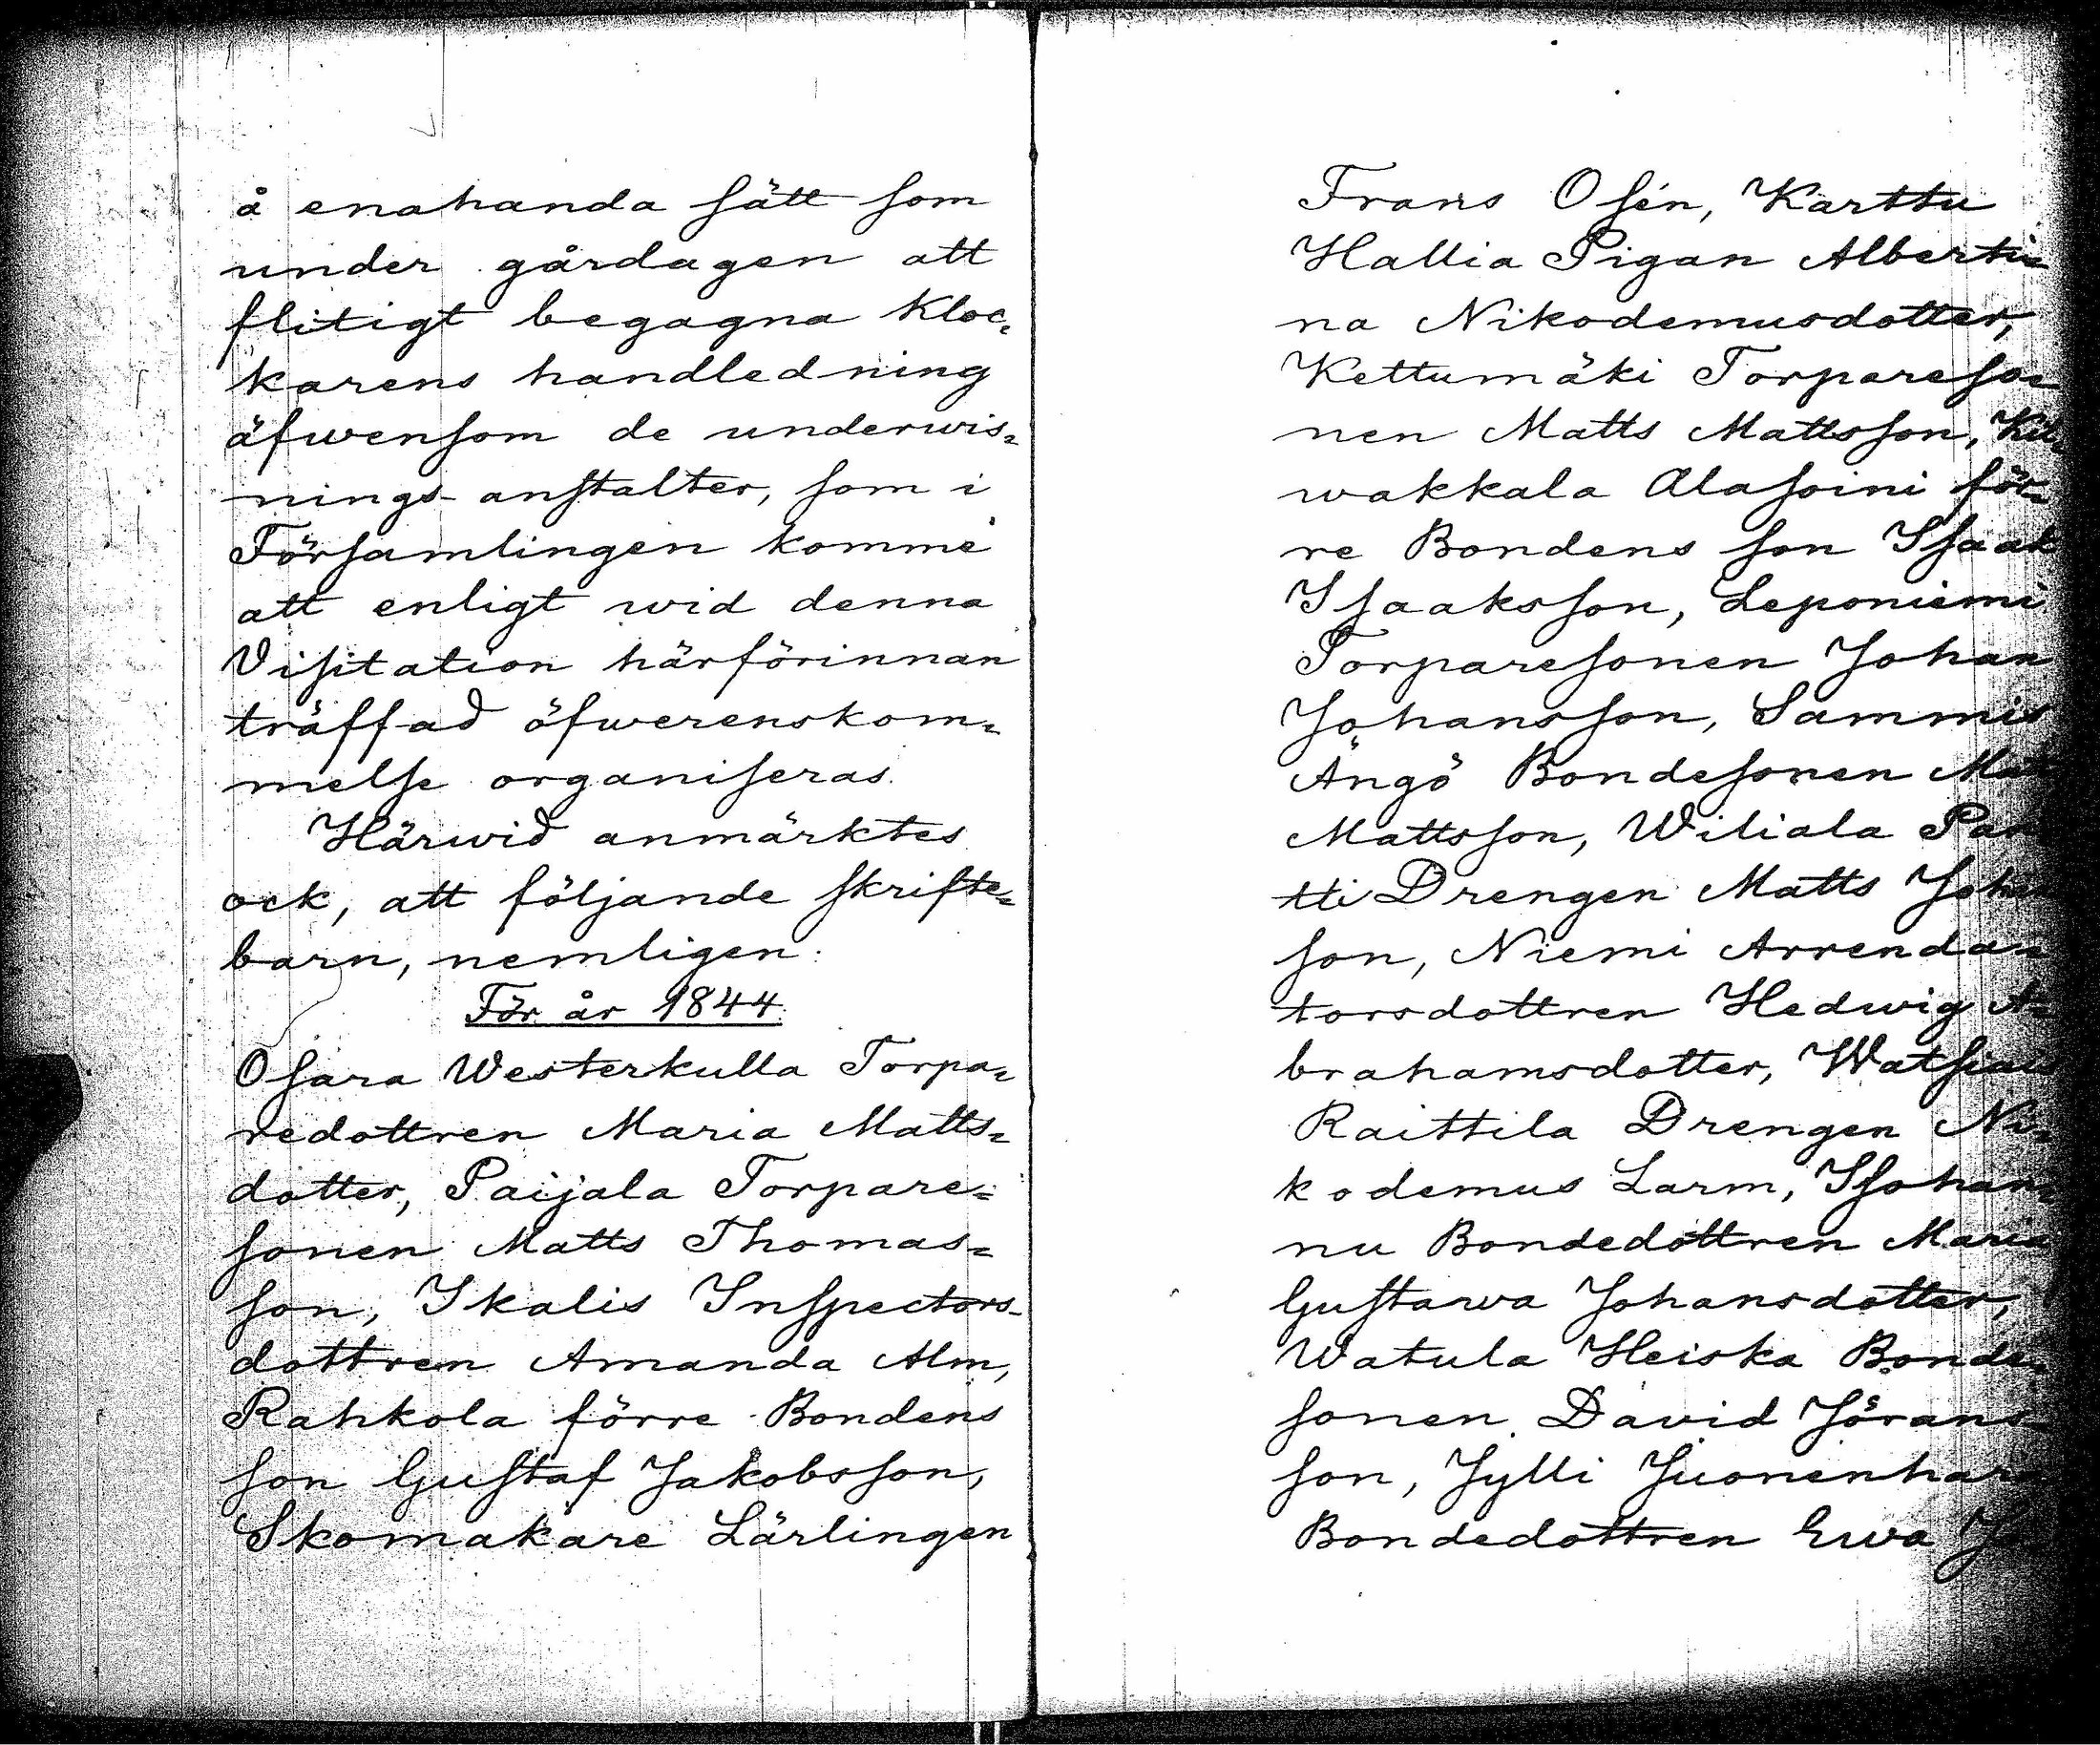 å enahanda sätt som
under gårdagen att
flitigt begagna Kloc=
karens handledning
äfwensom de underwis=
nings-anstalter, som i
Församlingen komme
att enligt wid denna
Visitation härförinnan
träffad öfwerenskom=
melse organiseras.
Härwid anmärktes
ock, att följande skrifte=
barn, nemligen:
För år 1844.
Osara Westerkulla Torpa=
redottren Maria Matts=
dotter, Paijala Torpare=
sonen Matts Thomas=
son, Ikalis Inspectors-
dottren Amanda Alm,
Rahkola förre Bondens
son Gustaf Jakobsson,
Skomakare Lärlingen
Frans Osén, Karttu
Hallia Pigan Alberti=
na Nikodemusdotter,
Kettumäki Torpareso=
nen Matts Mattsson, Kil=
wakkala Alasoini för=
re Bondens son Isaak
Isaaksson, Leponiemi
Torparesonen Johan
Johansson, Sammis
Ängö Bondesonen
Mattsson, Wiliala
tti Drengen Matts
son, Niemi Arrenda=
torsdottren Hedwig A=
brahamsdotter,
Raittila Drengen Ni=
kodemus Larm, Isohan=
nu Bondedottren Maria
Gustawa Johansdotter,
Watula Heiska Bonde=
sonen David Jörans=
son, Jylli
Bondedottren Ewa